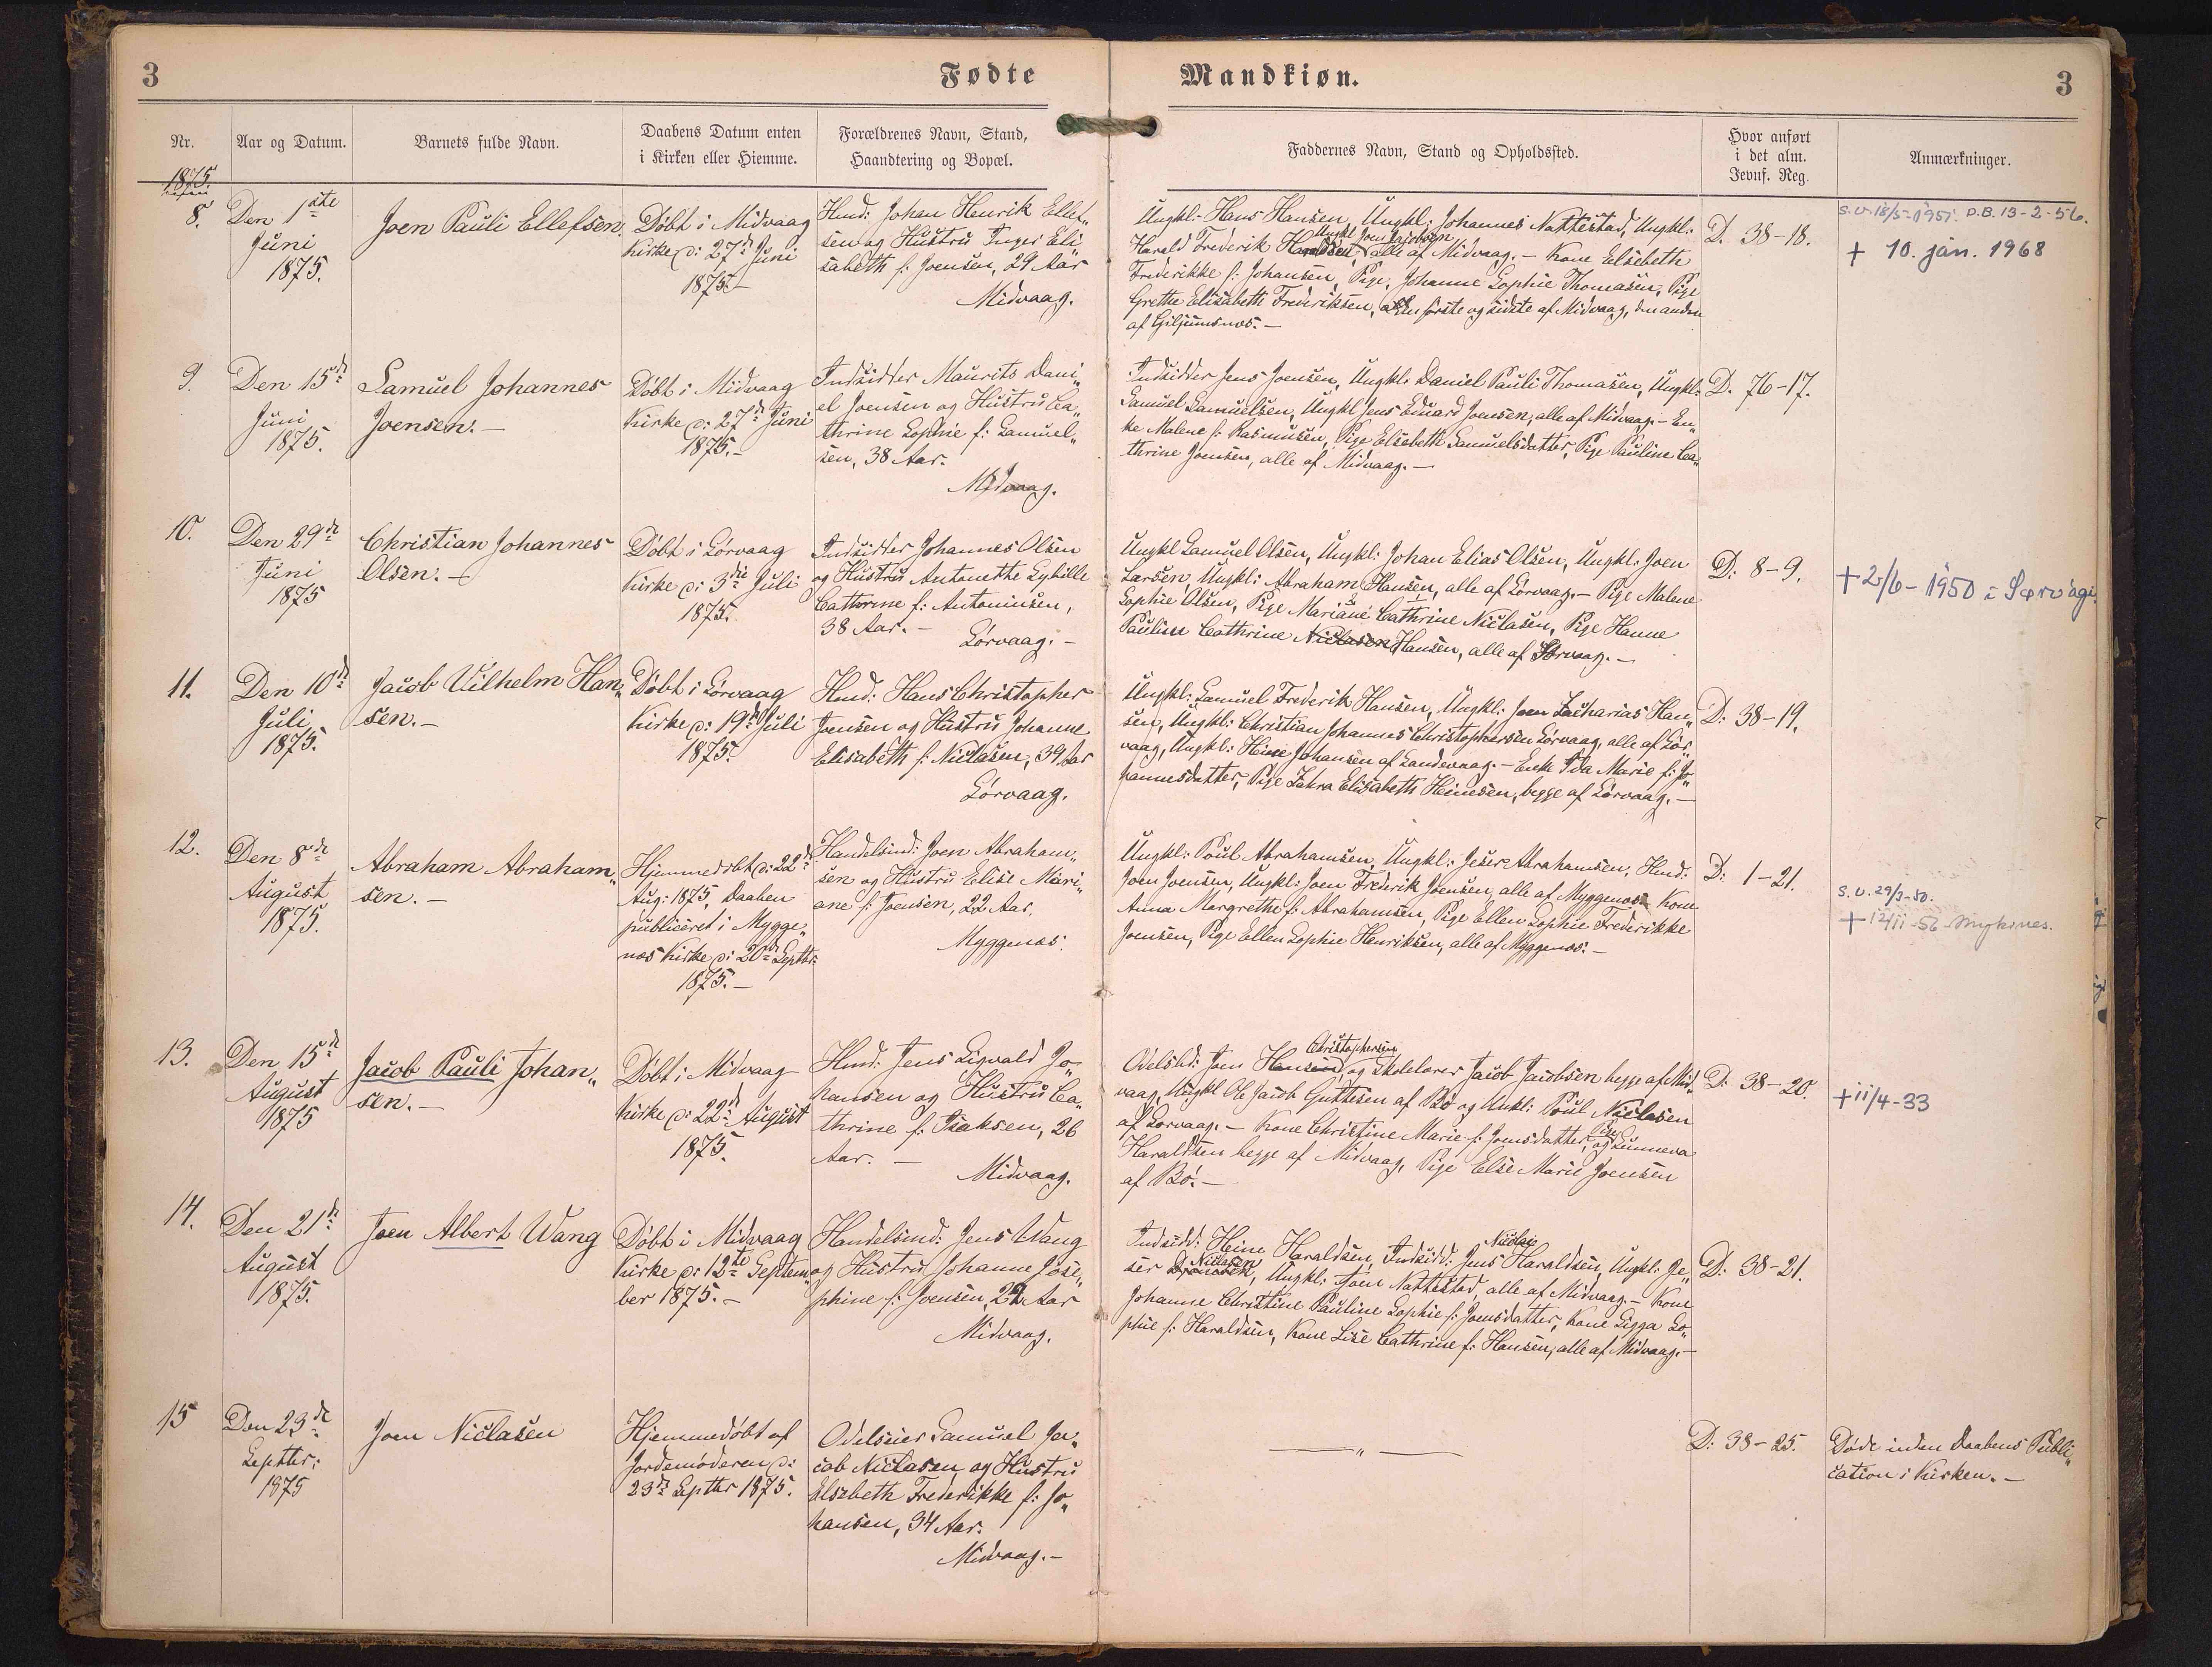 3
Fødte
Mandkiøn.
3
Nr.
Aar og Datum.
Barnets fulde Navn.
Daabens Datum enten
i Kirken eller Hiemme.
Forældrenes Navn, Stand,
Haandtering og Bopæl.
Faddernes Navn, Stand og Opholdssted.
Hvor anført
i det alm.
Jevnf. Reg.
Anmærkninger.
1875
8.
Den 1ste
Juni
1875.
Joen Pauli Ellefsen.
Döbt i Midvaag
Kirke d: 27de Juni
1875.-
Hmd: Johan Henrik Ellef„
sen og Hustru Inger Eli
sabeth f: Joensen, 29 Aar
Midvaag.
Ungkl: Hans Hansen, Ungkl: Johannes Nattestad, Ungkl:
Ungkl Joen Jacobsen
Harald Frederik Haraldsen, alle af Midvaag. - Kone Elsebeth
Frederikke f: Johansen, Pige, Johanne Sophie Thomasen, Pige
Grethe Elisabeth Frederiksen, den første og sidste af Midvaag, den anden
af Giljumsnæs. -
D. 38-18.
S.U. 18/5-1951. D.B. 13-2-56.
+ 10. jan. 1968
9.
Den 15de
Juni
1875.
Samuel Johannes
Joensen. -
Döbt i Midvaag
Kirke d: 27de Juni
1875. -
Indsidder Maurits Dani„
el Joensen og Hustru Ca„
thrine Sophie f: Samuel„
sen, 38 Aar.
Midvaag.
Indsidder Jens Joensen, Ungkl: Daniel Pauli Thomasen, Ungkl:
Samuel Samuelsen, Ungkl Jens Eduard Joensen, alle af Midvaag. - En„
ke Malene f: Rasmussen, Pige Elsebeth Samuelsdatter, Pige Pauline Ca„
thrine Joensen, alle af Midvaag. -
D. 76-17.
10.
Den 29de
Juni
1875
Christian Johannes
Olsen. -
Döbt i Sörvaag
Kirke d: 3die Juli
1875.
Indsidder Johannes Olsen
og Hustru Antonette Sybille
Cathrine f: Antoniusen,
38 Aar. -
Sörvaag. -
Ungkl Samuel Olsen, Ungkl: Johan Elias Olsen, Ungkl: Joen
Larsen, Ungkl: Abraham Hansen, alle af Sörvaag. - Pige Malene
Sophie Olsen, Pige Mariane Cathrine Niclasen, Pige Hanne
Pauline Cathrine Niclasen Hansen, alle af Sörvaag. -
D: 8-9.
+ 2/6 - 1950 i Sørvági.
11.
Den 10de
Juli
1875.
Jacob Vilhelm Han„
sen. -
Döbt i Sörvaag
Kirke d: 19de Juli
1875.
Hmd: Hans Christopher
Joensen og Hustru Johanne
Elisabeth f: Niclasen, 39 Aar
Sörvaag.
Ungkl: Samuel Frederik Hansen, Ungkl: Joen Zacharias Han„
sen, Ungkl: Christian Johannes Christophersen Sörvaag, alle af Sör„
vaag, Ungkl: Heine Johansen af Sandevaag. - Enke Ida Marie f: Jo„
hannesdatter, Pige Elisabeth Heinesen, begge af Sörvaag. -
D: 38-19.
12.
Den 8de
August
1875.
Abraham Abraham„
sen. -
Hjemmedöbt d: 22de
Aug: 1875, Daaben
publiceret i Mygge„
næs Kirke d: 20de Septbr:
1875. -
Handelsmd: Joen Abraham„
sen og Hustru Elise Mari„
ane f: Joensen, 22 Aar.
Myggenæs.
Ungkl: Poul Abrahamsen, Ungkl: Jeser Abrahamsen, Hmd:
Joen Joensen, Ungkl: Joen Frederik Joensen, alle af Myggenæs. Kone
Anna Margrethe f: Abrahamsen, Pige Ellen Sophie Frederikke
Joensen, Pige Ellen Sophie Henriksen, alle af Myggenæs. -
D: 1-21.
S.U. 29/3-50.
+ 12/11-56 Mykines.
13.
Den 15de
August
1875
Jacob Pauli Johan„
sen. -
Döbt i Midvaag
Kirke d: 22de August
1875.
Hmd: Jens Sigvald Jo„
hansen og Hustru Ca„
thrine f: Isaksen, 26
Aar. -
Midvaag.
Christophersen
Odelsbd: Joen Hansen, og Skolelærer Jacob Jacobsen begge af Mid„
vaag, Ungkl Ole Jacob Guttesen af Bö og Unkl: Poul Niclasen
af Sörvaag. - Kone Christine Marie f: Joensdatter, og Pige Sunneva
Haraldsen begge af Midvaag, Pige Else Marie Joensen
af Bö. -
D: 38-20.
+ 11/4-33
14.
Den 21de
August
1875.
Joen Albert Wang
Döbt i Midvaag
Kirke d: 12te Septem„
ber 1875. -
Handelsmd: Jens Wang
og Hustru Johanne Jose„
phine f: Joensen, 22 Aar
Midvaag.
Indsidd: Heine Haraldsen, Indsidd: Jens Nicolai Haraldsen, Ungkl: Je„
ser Niclasen, Ungkl: Joen Nattestad, alle af Midvaag. - Kone
Johanne Christine Pauline Sophie f: Joensdatter, Kone Sigga So„
phie f: Haraldsen, Kone Lise Cathrine f: Hansen, alle af Midvaag. -
D: 38-21.
15
Den 23de
Septbr:
1875
Joen Niclasen
Hjemmedöbt af
Jordemoderen d:
23de Septbr 1875.
Odelseier Samuel Ja„
cob Niclasen og Hustru
Elsebeth Frederikke f: Jo„
hansen, 34 Aar.
Midvaag. -
— „ —
D: 38-25.
Döde inden Daabens Publi„
cation i Kirken. -